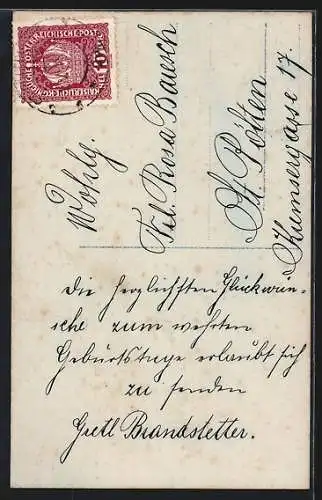 KAISERLICHKÖNIGLICHE ÖSTERREICHISCHE POST
10
Wohlg.
Frl. Rosa Bausch
St. Pölten
Kremsergasse 17.
Die herzlichsten Glückwün-
sche zum werten
Geburtstage erlaubt sich
zu senden
Gretl Brandstetter.